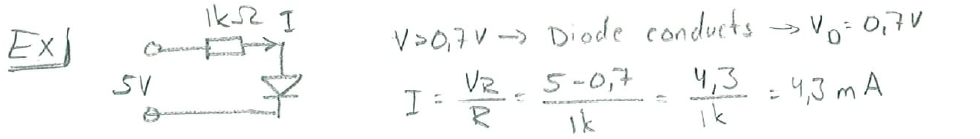 Ex)
1kΩ I
5V
V>0,7V → Diode conducts → V_D = 0,7V
I = VR/R = 5-0,7/1k = 4,3/1k = 4,3 mA